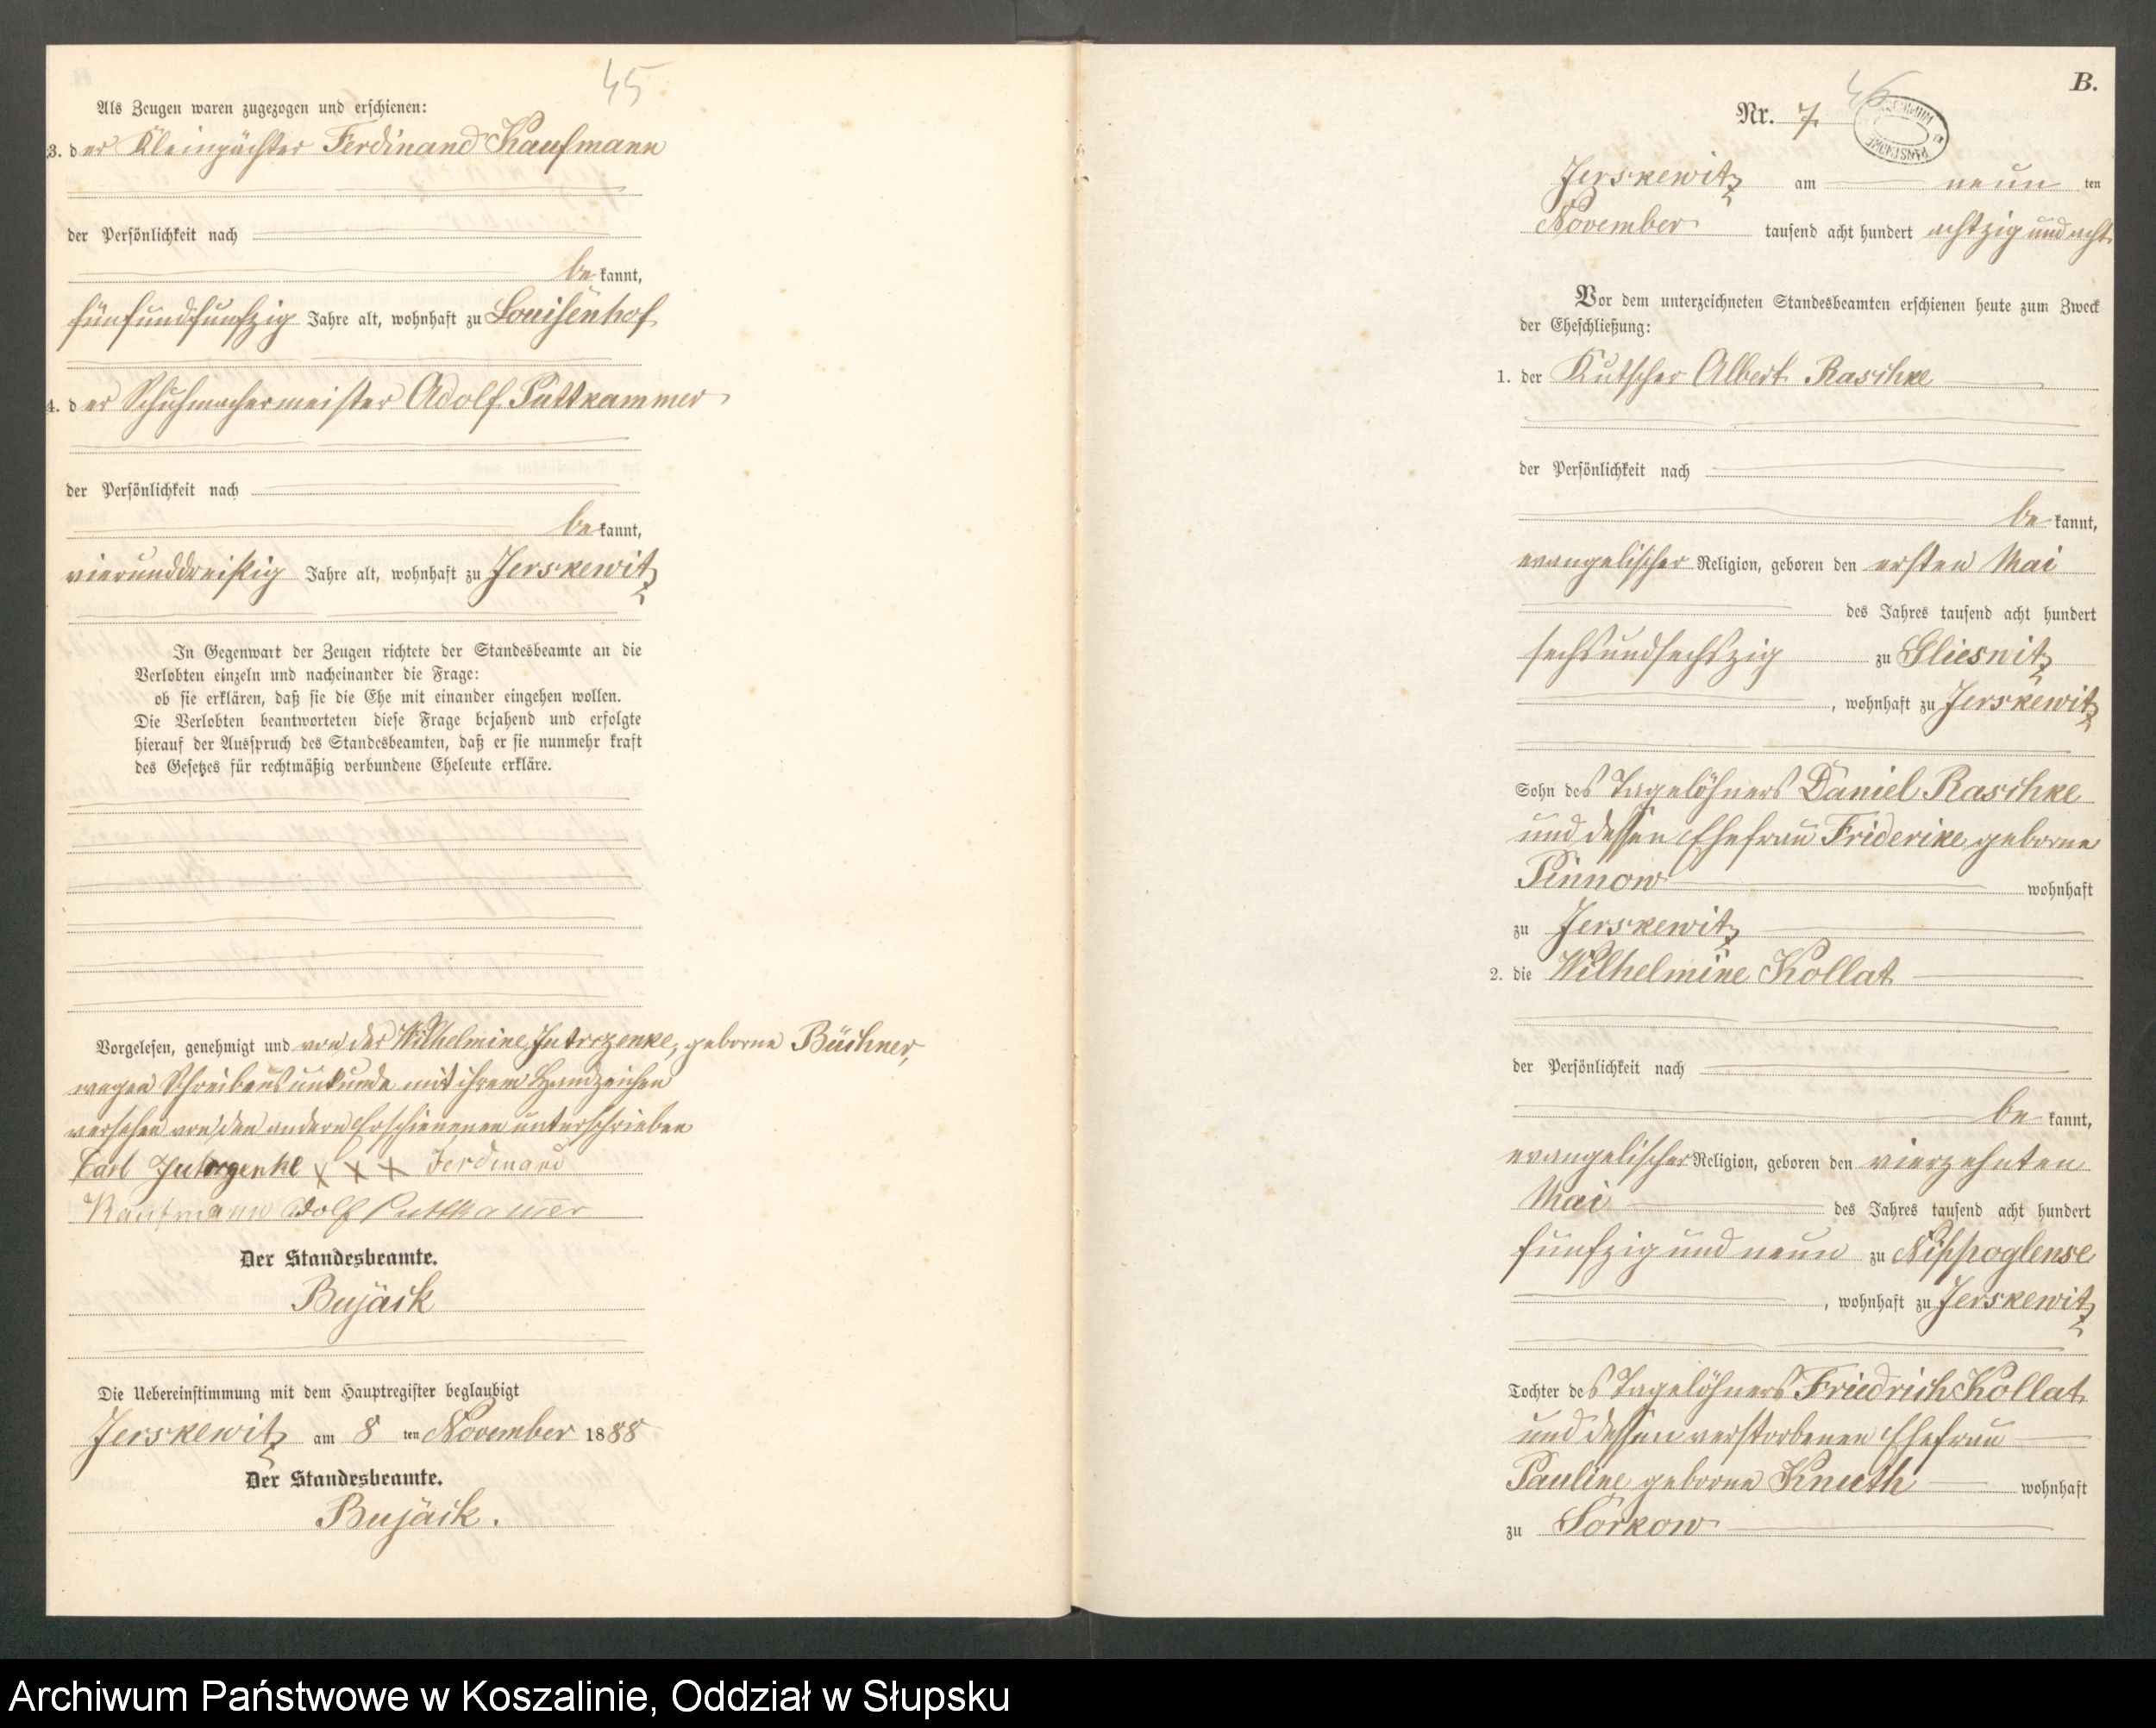 45
Als Zeugen waren zugezogen und erschienen:
3. der Kleinpächter Ferdinand Kaufmann
der Persönlichkeit nach
be kannt,
fünfundfunfzig Jahre alt, wohnhaft zu Louisenhof
4. der Schuhmachermeister Adolf Puttkammer
der Persönlichkeit nach
be kannt,
vierunddreißig Jahre alt, wohnhaft zu Jerskewitz
In Gegenwart der Zeugen richtete der Standesbeamte an die
Verlobten einzeln und nacheinander die Frage:
ob sie erklären, daß sie die Ehe mit einander eingehen wollen.
Die Verlobten beantworteten diese Frage bejahend und erfolgte
hierauf der Ausspruch des Standesbeamten, daß er sie nunmehr kraft
des Gesetzes für rechtmäßig verbundene Eheleute erkläre.
Vorgelesen, genehmigt und von der Wilhelmine Jutrzenke, geborne Büchner,
wegen Schreibensunkunde mit ihrem Handzeichen
versehen von den andern Erschienenen unterschrieben
Carl Jutrzenke x x x Ferdinand
Kaufmann Adolf Puttkamer
Der Standesbeamte.
Bujack
Die Uebereinstimmung mit dem Hauptregister beglaubigt
Jerskewitz am 8 ten November 1888
Der Standesbeamte.
Bujack.
46
B.
Nr. 7
Jerskewitz am neun ten
November tausend acht hundert achtzig und acht
Vor dem unterzeichneten Standesbeamten erschienen heute zum Zweck
der Eheschließung:
1. der Kutscher Albert Raschke
der Persönlichkeit nach
be kannt,
evangelischer Religion, geboren den ersten Mai
des Jahres tausend acht hundert
sechsundsechszig zu Gliesnitz
, wohnhaft zu Jerskewitz
Sohn des Tagelöhners Daniel Raschke
und dessen Ehefrau Friderike geborne
Pinnow wohnhaft
zu Jerskewitz
2. die Wilhelmine Kollat
der Persönlichkeit nach
be kannt,
evangelischer Religion, geboren den vierzehnten
Mai des Jahres tausend acht hundert
funfzig und neun zu Nippoglense
, wohnhaft zu Jerskewitz
Tochter des Tagelöhners Friedrich Kollat
und dessen verstorbenen Ehefrau
Pauline geborne Knuth wohnhaft
zu Sorkow
Archiwum Państwowe w Koszalinie, Oddział w Słupsku